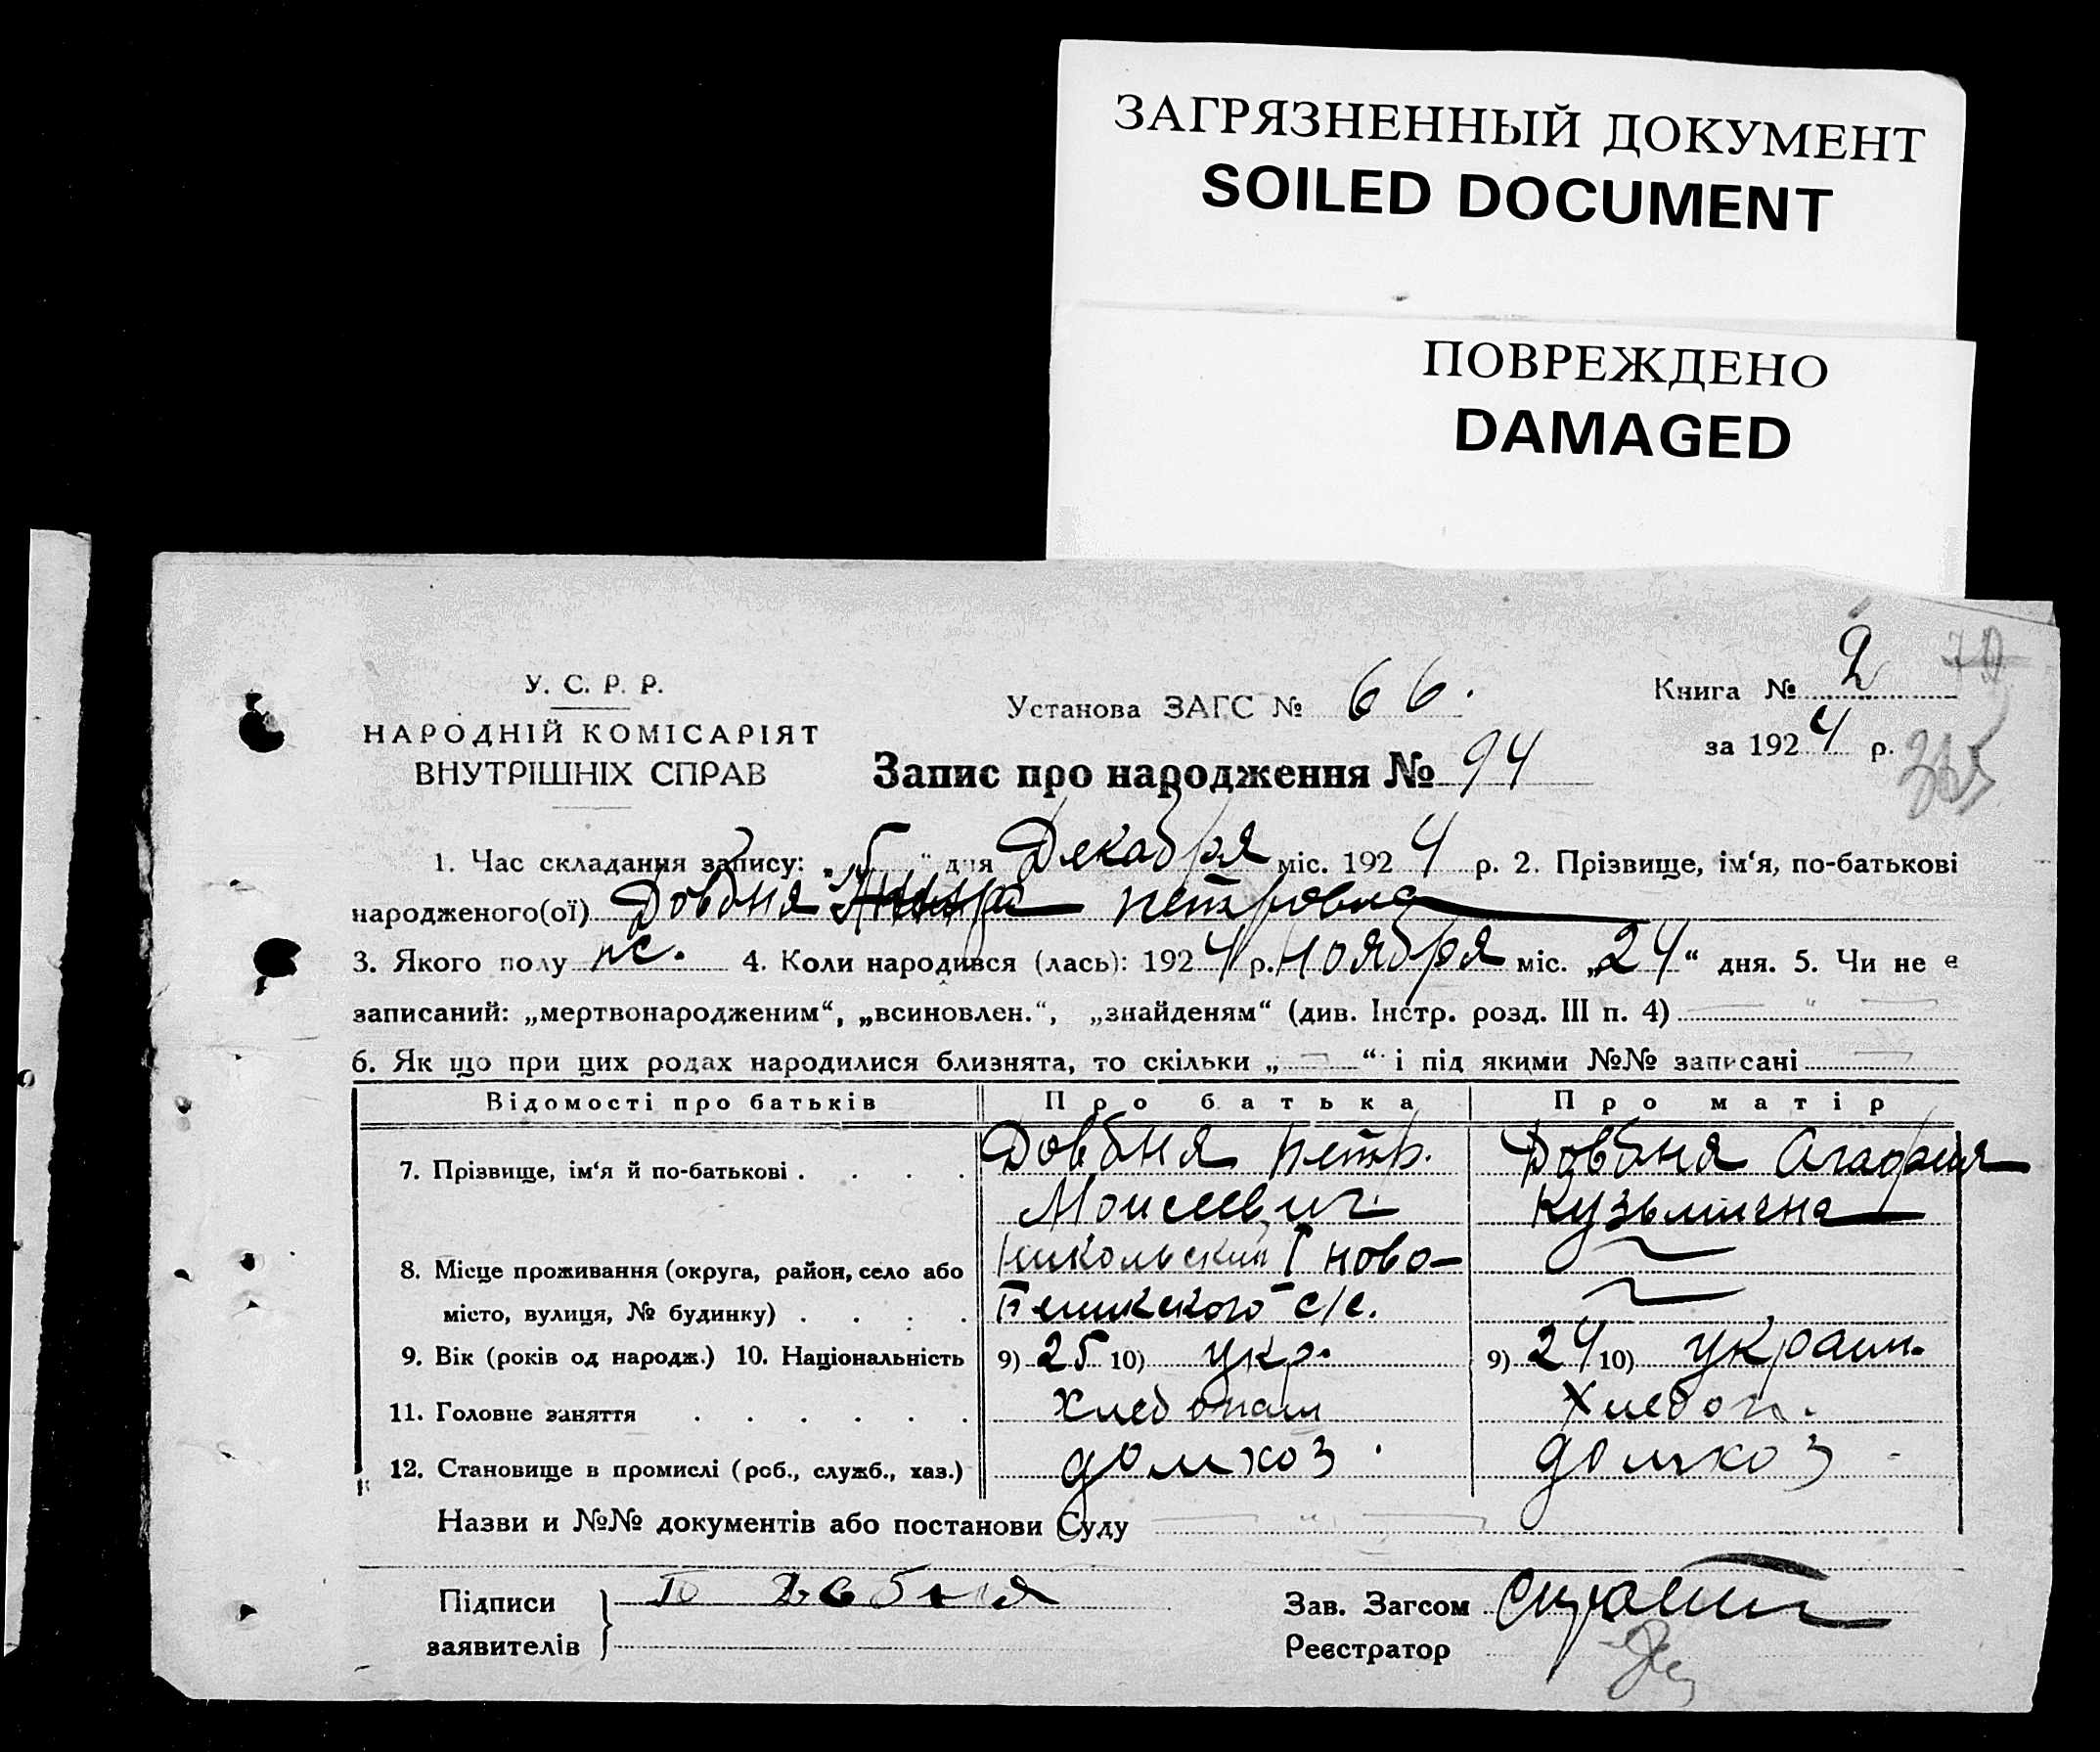 ЗАГРЯЗНЕННЫЙ ДОКУМЕНТ
SOILED DOCUMENT
ПОВРЕЖДЕНО
DAMAGED
У. С. Р. Р.
НАРОДНІЙ КОМІСАРІЯТ
ВНУТРІШНІХ СПРАВ
Установа ЗАГС № 66.
Книга № 2
70
за 1924 р.
Запис про народження № 94
1. Час складання запису: „5“ дня Декабря міс. 1924 р. 2. Прізвище, ім‘я, по-батькові
народженого(ої) Довбня петровна
3. Якого полу ж. 4. Коли народився (лась): 1924 р. Ноября міс. „24“ дня. 5. Чи не є
записаний: „мертвонародженим“, „всиновлен.“, „знайденям“ (див. Інстр. розд. III п. 4) — " —
6. Як що при цих родах народилися близнята, то скільки „—“ і під якими №№ записані —
Відомості про батьків Про батька Про матір
7. Прізвище, ім‘я й по-батькові . . . . Довбня петр. Довбня Агафия
Моисеевич Кузьмина
8. Місце проживання (округа, район, село або Никольский Ново-
місто, вулиця, № будинку) . . . . с/с.
9. Вік (років од народж.) 10. Національність 9) 25 10) укр. 9) 24 10) украин.
11. Головне заняття . . . . . . хлебопаш Хлебоп.
12. Становище в промислі (роб., служб., хаз.) домхоз. домхоз
Назви и №№ документів або постанови Суду — " —
Підписи
заявителів
П Довбня
Зав. Загсом
Реєстратор